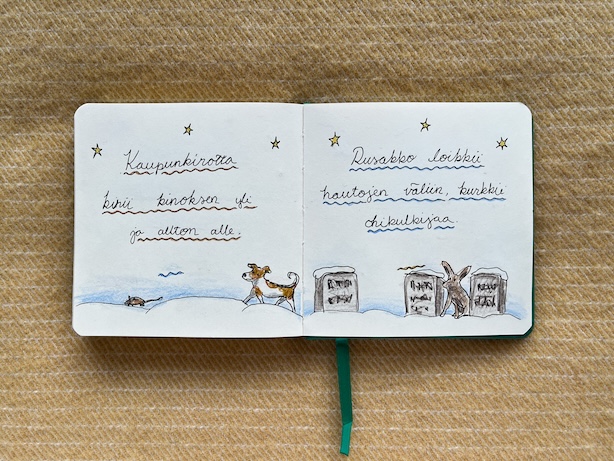 Kaupunkirotta
kinoksen yli
ja alle.
Rusakko loikkii
hautojen väliin, kurkkii
ohikulkijaa.